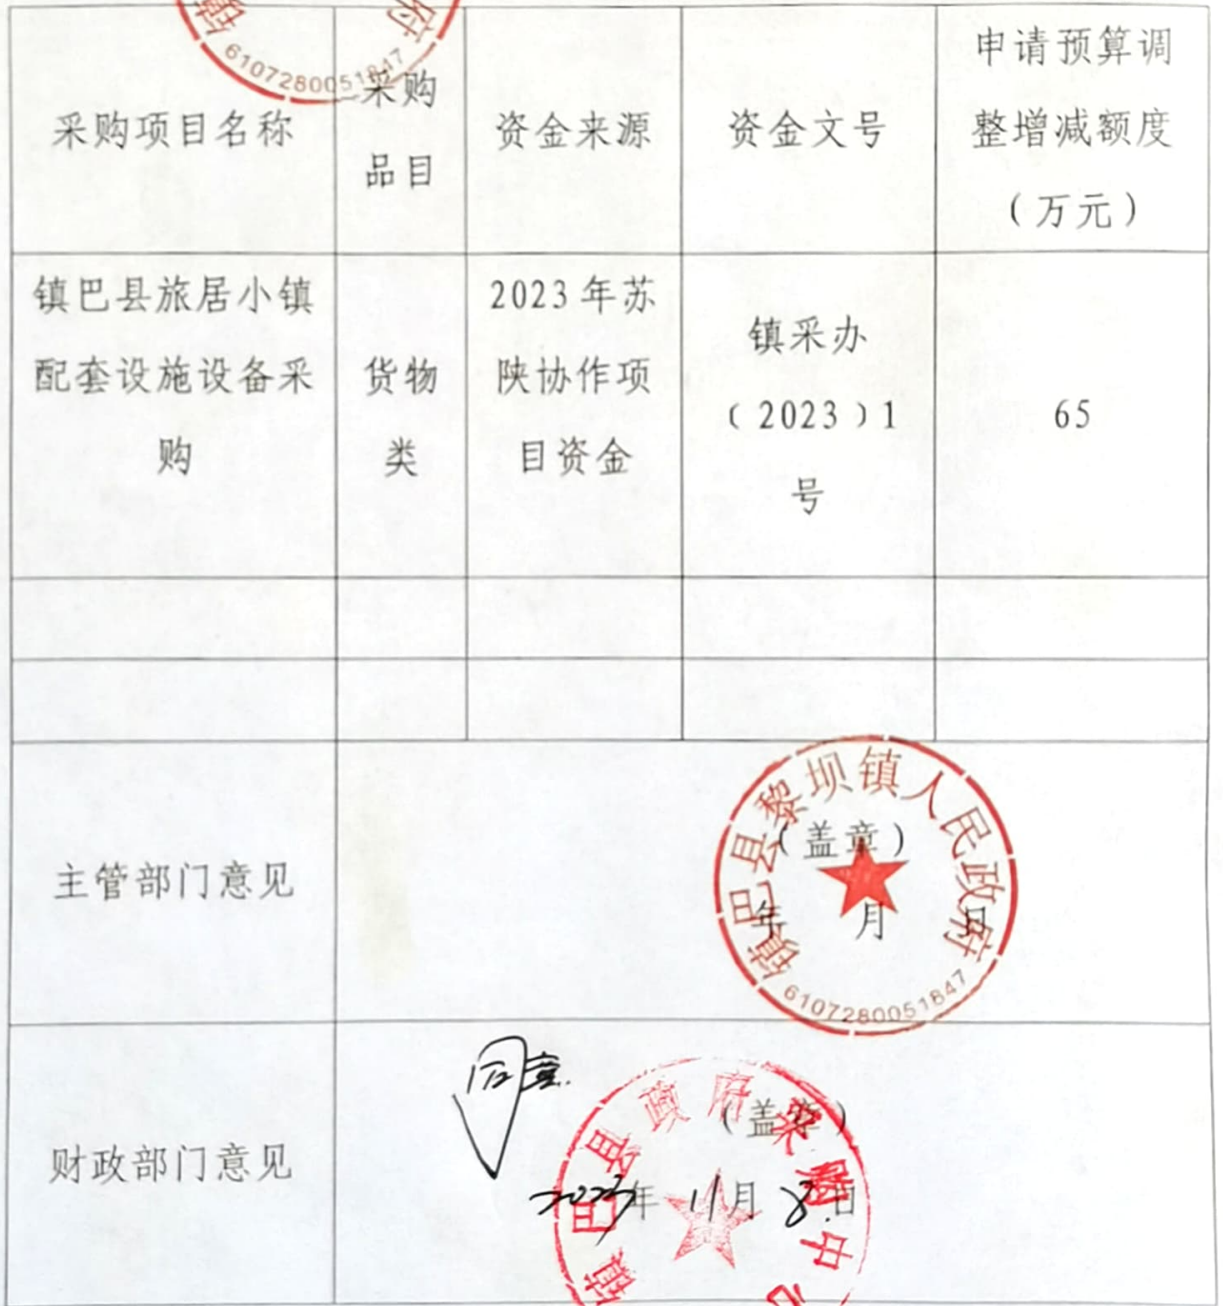 镇
府
6107280051847
采购项目名称
采购
品目
资金来源
资金文号
申请预算调
整增减额度
（万元）
镇巴县旅居小镇
配套设施设备采
购
货物
类
2023年苏
陕协作项
目资金
镇采办
（2023）1
号
65
主管部门意见
（盖章）
年 月 日
镇巴县黎坝镇人民政府
6107280051847
财政部门意见
同意.
（盖章）
2023年 11月 8.日
镇巴县政府采购中心